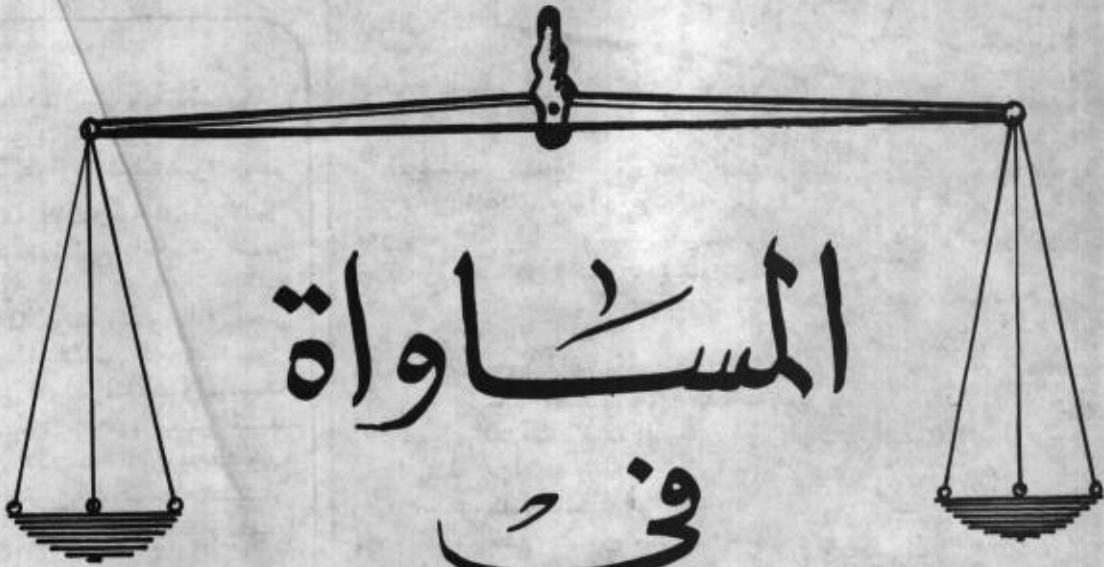 المساواة
في